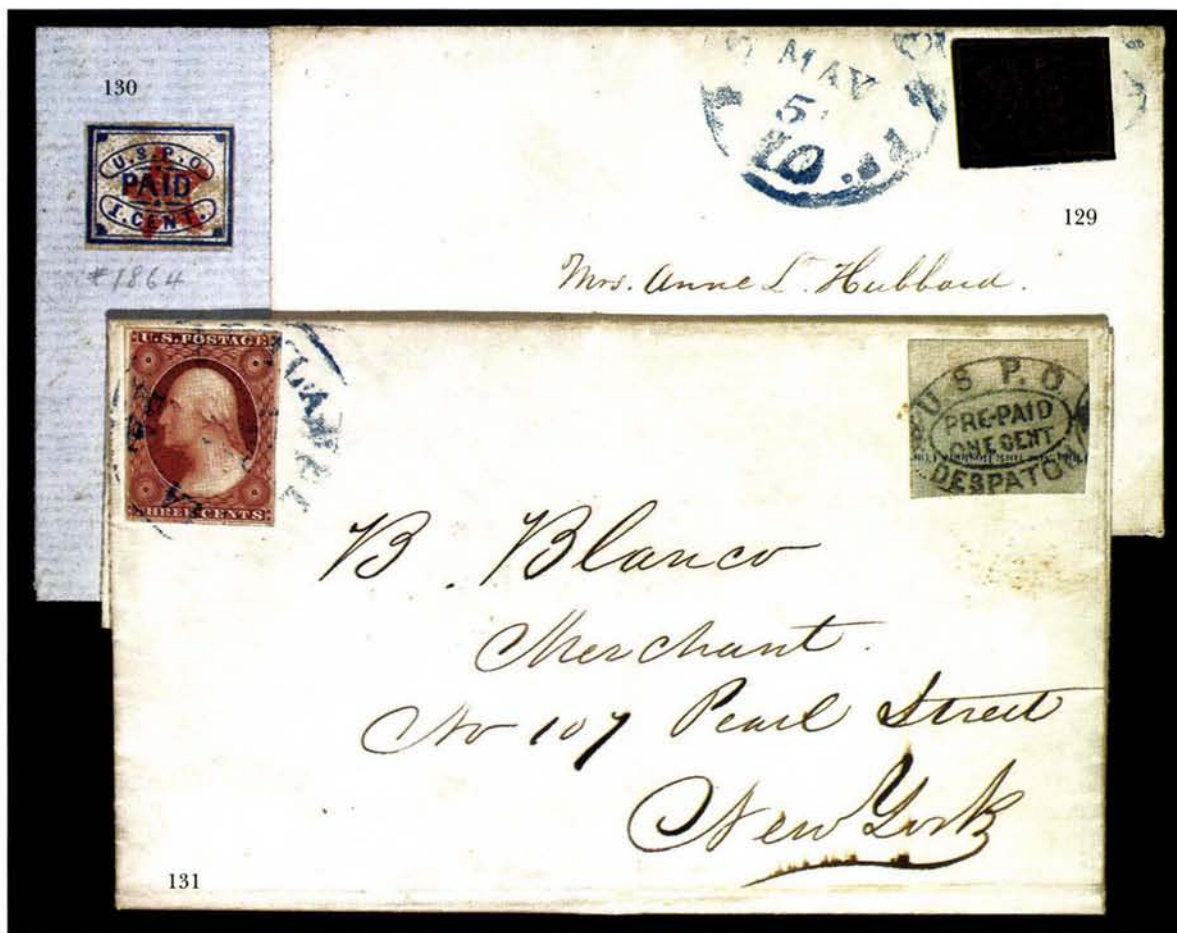 130
U.S.P.O
PAID
1.CENT.
#1864
MAY
5
129
Mrs. Anne L. Hubbard.
U.S.POSTAGE
THREE CENTS
U S P.O
PRE-PAID
ONE CENT
DESPATCH
B. Blanco
Merchant.
No 107 Pearl Street
New York
131